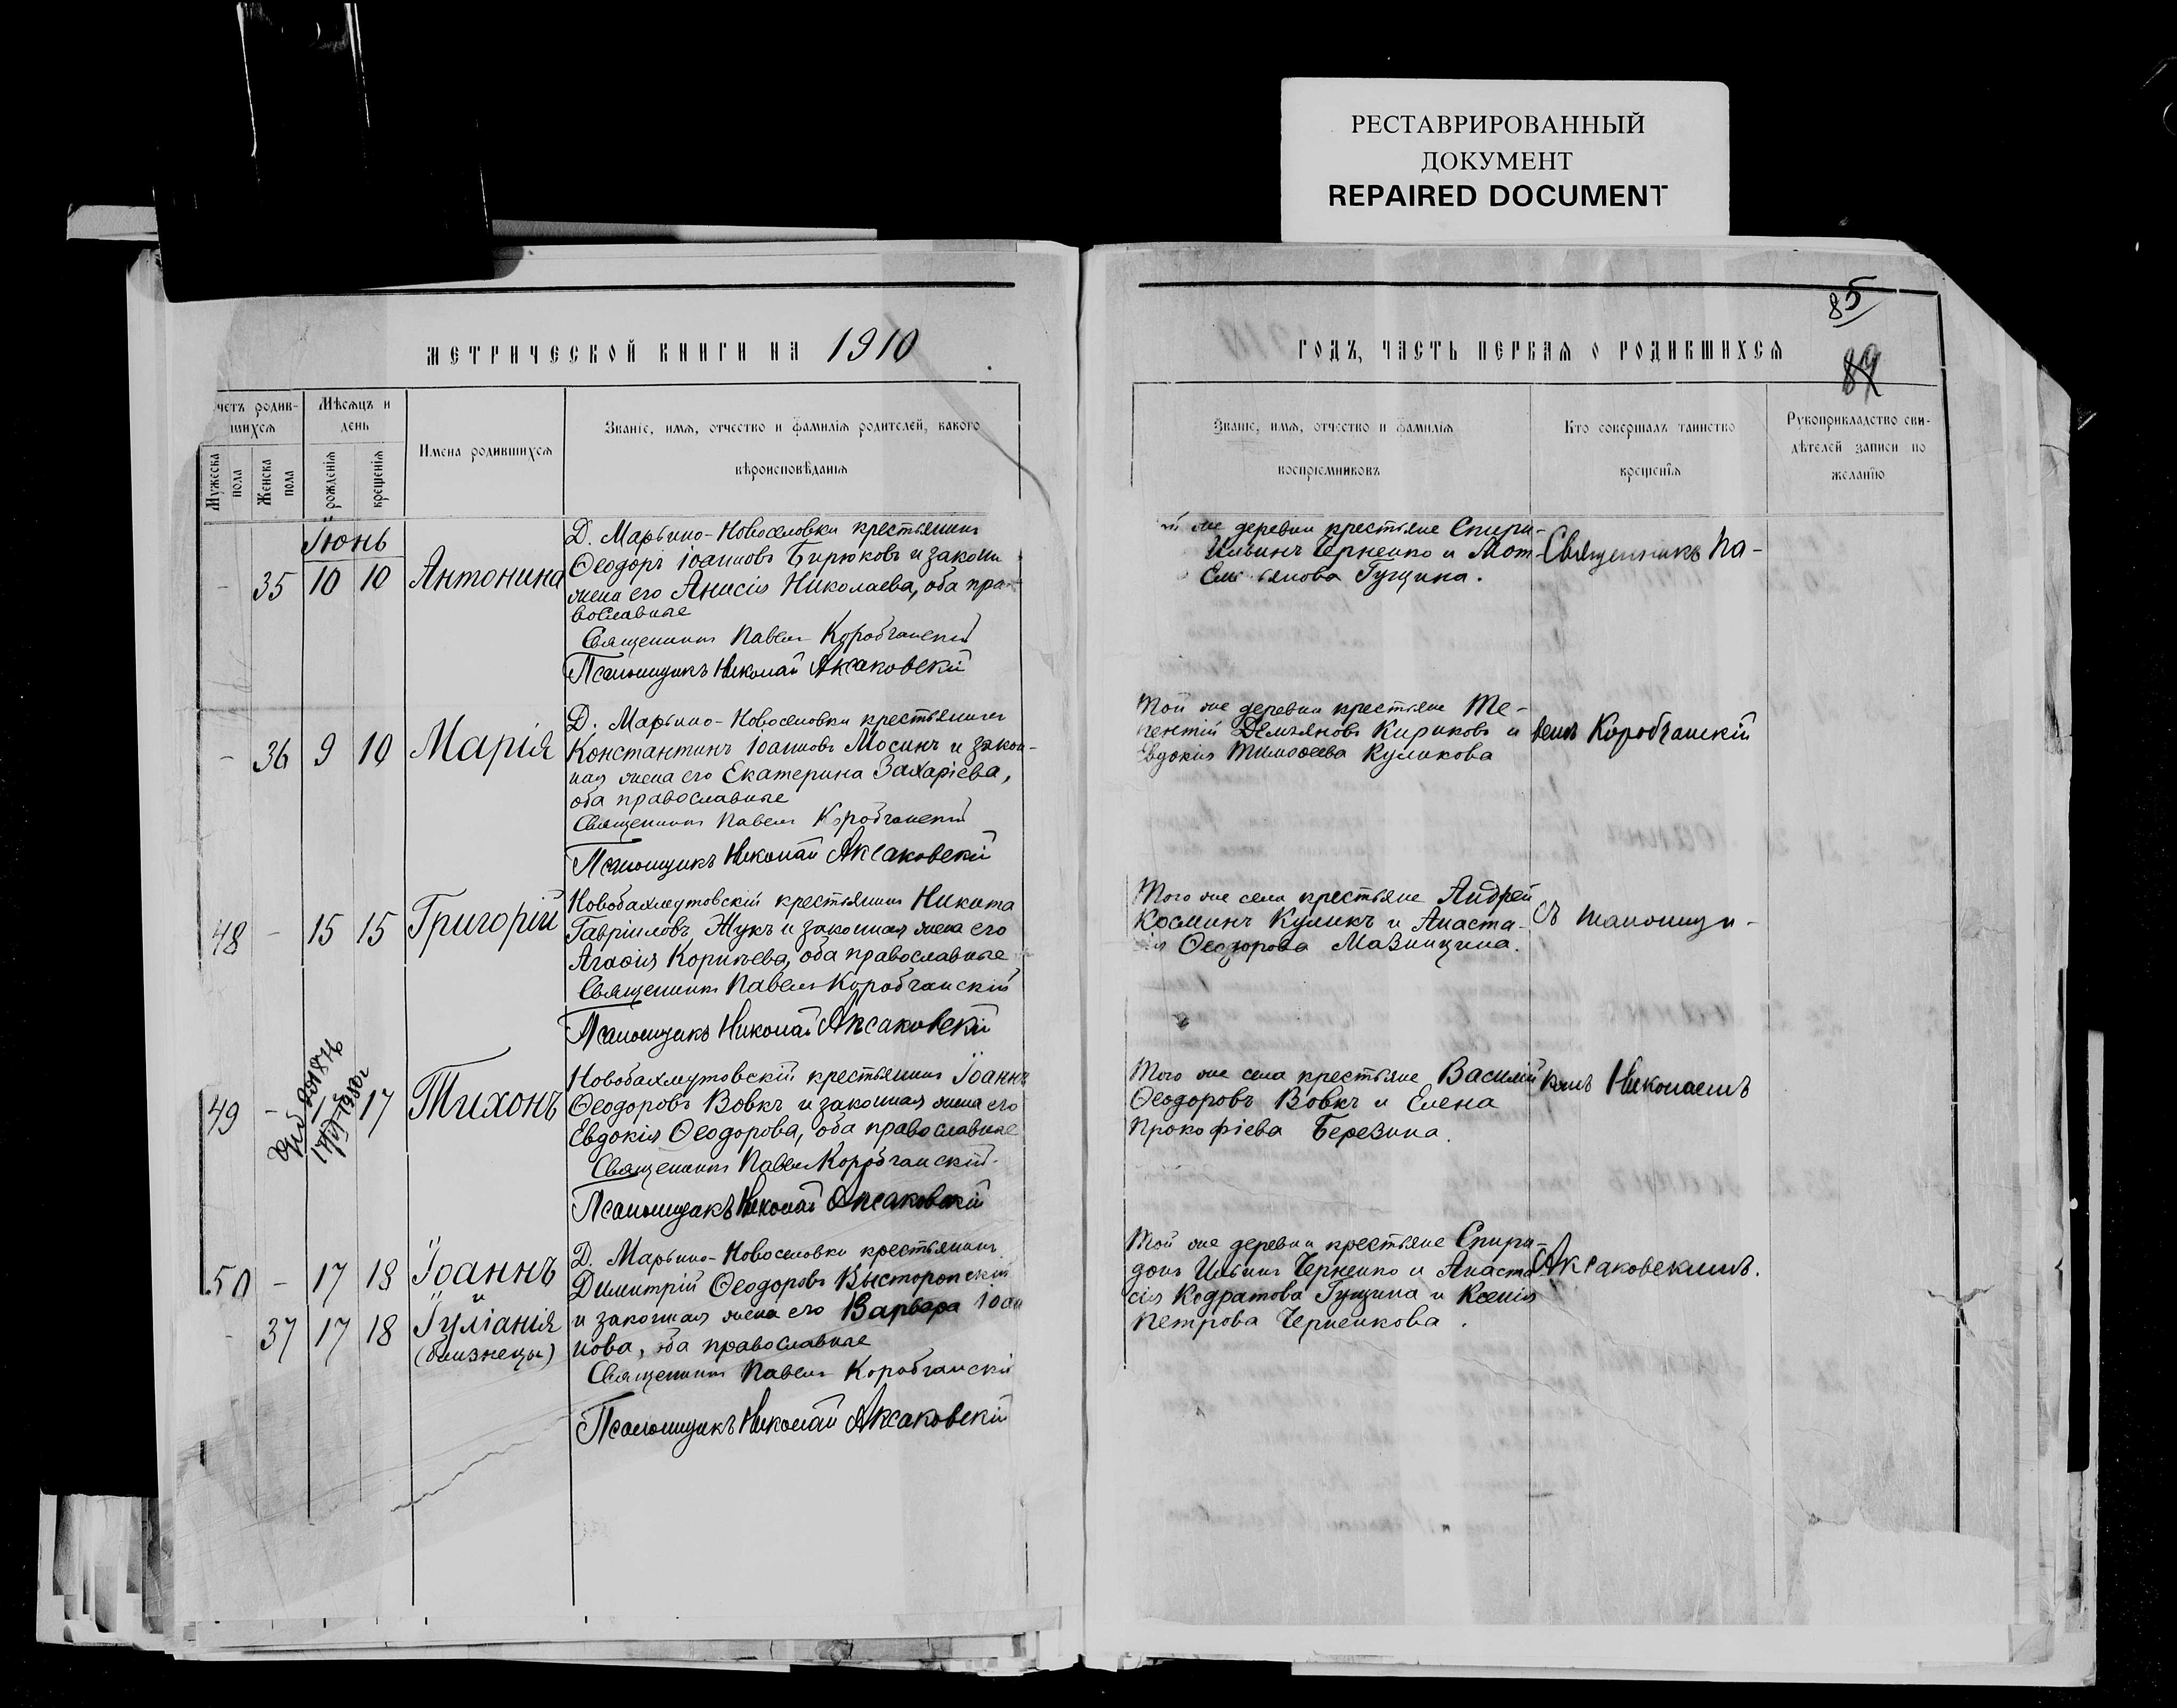 РЕСТАВРИРОВАННЫЙ
ДОКУМЕНТ
REPAIRED DOCUMENT
МЕТРИЧЕСКОЙ КНИГИ НА 1910
четъ родив-
шихся
Мѣсяцъ и
день
Имена родившихся
Званіе, имя, отчество и фамилія родителей, какого
вѣроисповѣданія
Мужеска
пола
Женска
пола
рожденія
крещенія
Іюнь
- 35 10 10 Антонина
Д. Марьино-Новоселовки крестьянинъ
Ѳеодоръ Іоанновъ Бирюковъ и законн
жена его Анисія Николаева, оба пра-
вославные
Священникъ Павелъ Коробчанскій
Псаломщикъ Николай Аксаковскій
- 36 9 10 Марія
Д. Марьино-Новоселовки крестьянинъ
Константинъ Іоанновъ Мосинъ и закон-
ная жена его Екатерина Захаріева,
оба православные
Священникъ Павелъ Коробчанскій
Псаломщикъ Николай Аксаковскій
48 - 15 15 Григорій
Новобахмутовскій крестьянинъ Никита
Гавріиловъ Жукъ и законная жена его
Агаѳія Корнѣева, оба православные
Священникъ Павелъ Коробчанскій
Псаломщикъ Николай Аксаковскій
49 - 17 Тихонъ
Новобахмутовскій крестьянинъ Іоаннъ
Ѳеодоровъ Вовкъ и законная жена его
Евдокія Ѳеодорова, оба православные
Священникъ Павелъ Коробчанскій
Псаломщикъ Николай Аксаковскій
50 - 17 18 Іоаннъ
и
- 37 17 18 Іуліанія
(близнецы)
Д. Марьино-Новоселовки крестьянинъ
Димитрій Ѳеодоровъ Высторопскій
и законная жена его Варвара Іоан
нова, оба православные
Священникъ Павелъ Коробчанскій
Псаломщикъ Николай Аксаковскій
85
87
ГОДЪ, ЧАСТЬ ПЕРВАЯ О РОДИВШИХСЯ
Званіе, имя, отчество и фамилія
воспріемниковъ
Кто совершалъ таинство
крещенія
Рукоприкладство сви-
дѣтелей записи по
желанію
й же деревни крестьяне Спири-
Ильинъ Черненко и Мот-
Емельянова Гущина.
Священникъ Па-
Той же деревни крестьяне Те-
рентій Демьяновъ Кириковъ и
Евдокія Тимоѳеева Куликова
велъ Коробчанскій
Того же села крестьяне Андрей
Косминъ Куликъ и Анаста-
сія Ѳеодорова Мазницина.
съ псаломщи-
Того же села крестьяне Василій
Ѳеодоровъ Вовкъ и Елена
Прокофіева Березина.
комъ Николаемъ
Той же деревни крестьяне Спири-
донъ Ильинъ Черненко и Анаста-
сія Кодратова Гущина и Ксенія
Петрова Черненкова.
Аксаковскимъ.